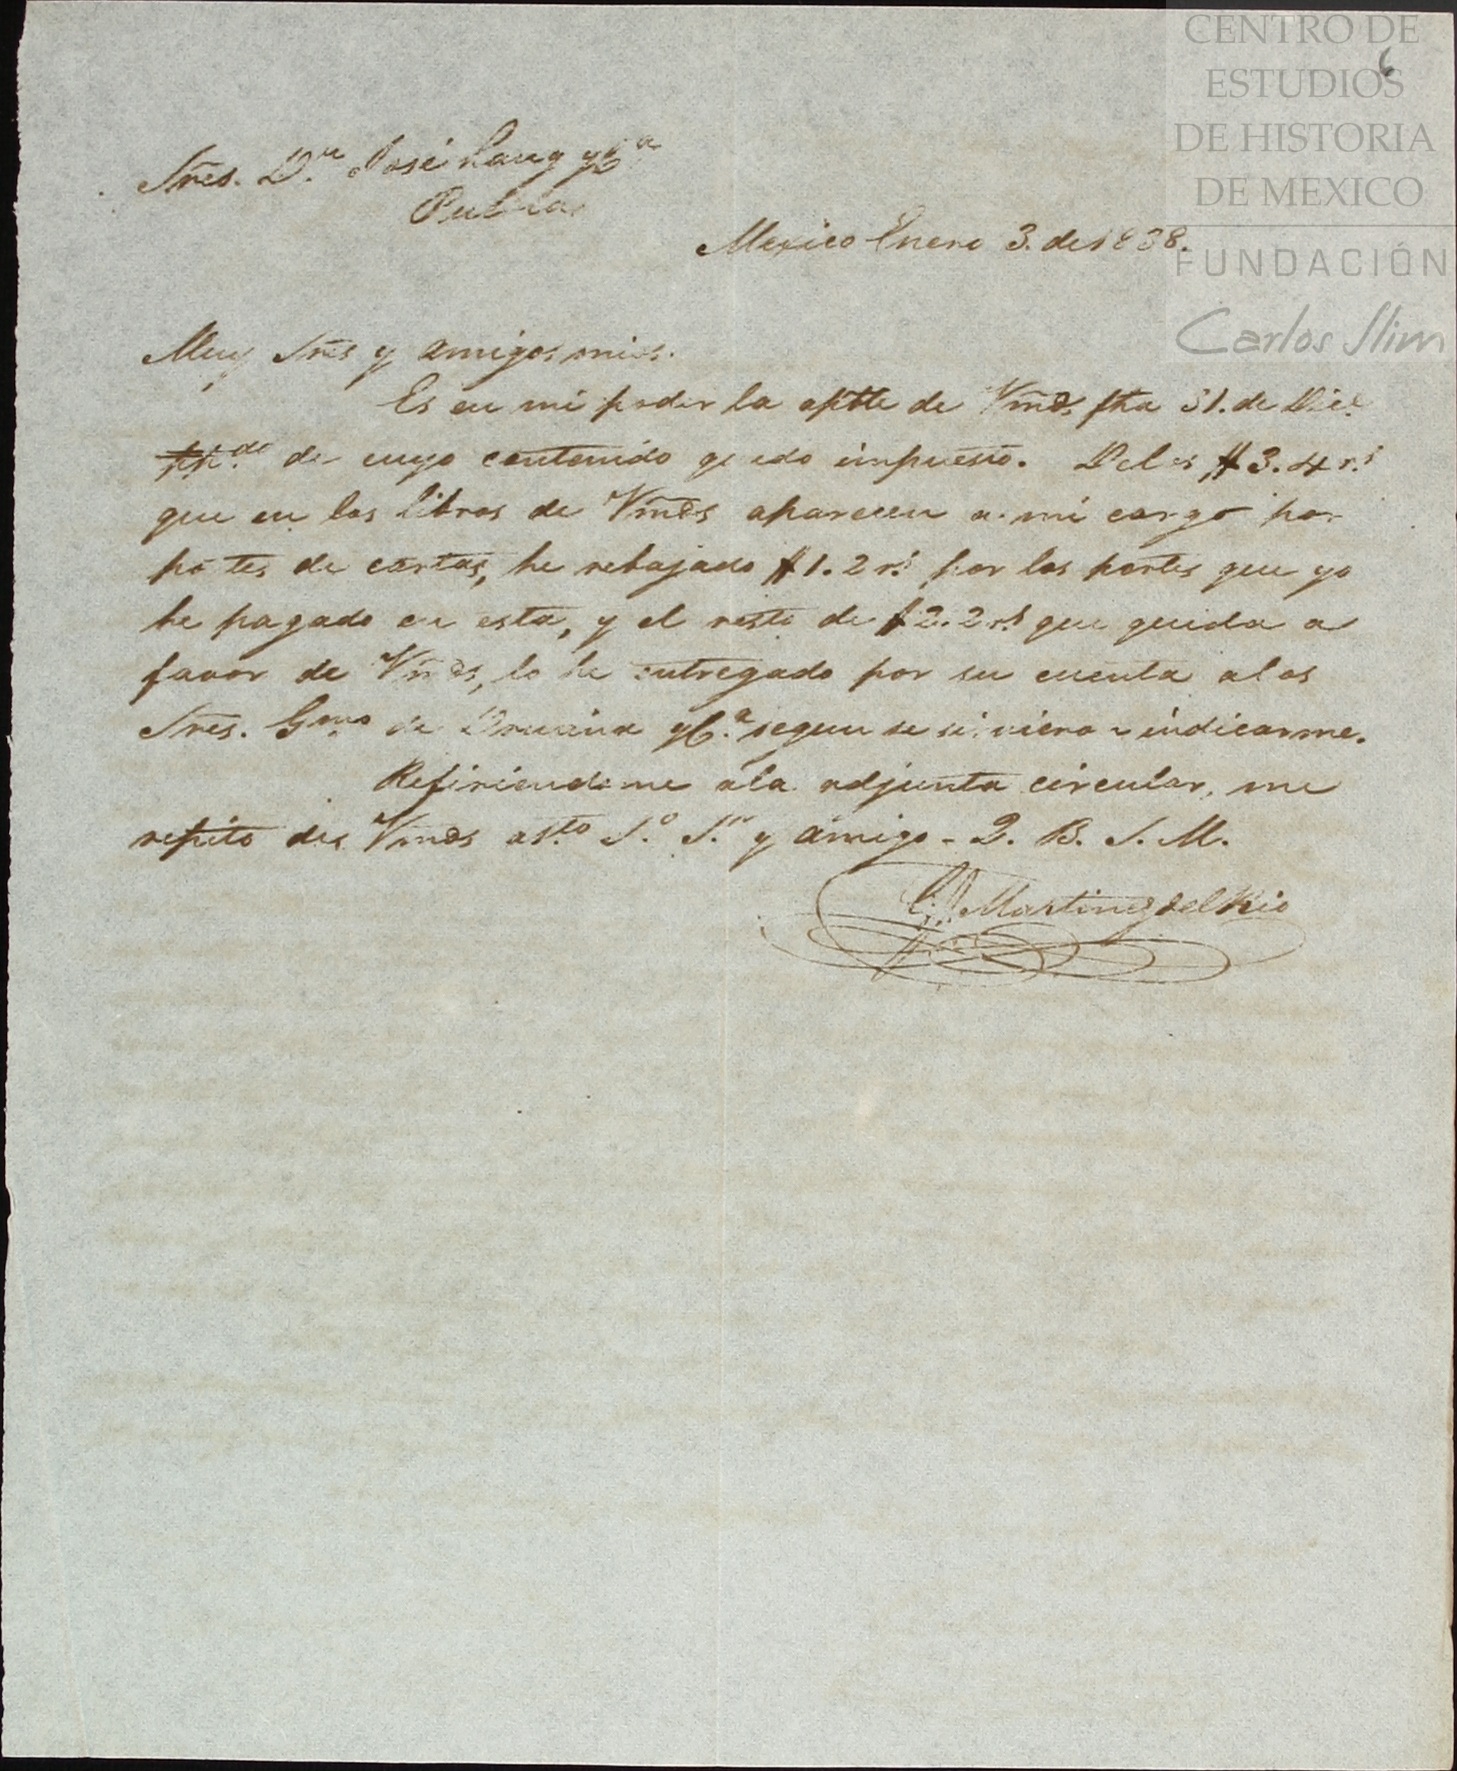 CENTRO DE
ESTUDIOS
DE HISTORIA
DE MEXICO
FUNDACIÓN
Carlos Slim
6
Sres. D.n José Laug y C.a
Puebla
Mexico Enero 3. de 1838.
Muy Sres y amigos mios.
Es en mi poder la aptte de Vmds. fha 31. de Dice.
de cuyo contenido quedo impuesto. Delos $3.4 r.s
que en los libros de Vmds aparecen a mi cargo por
portes de cartas, he rebajado $1.2 r.s por los portes que yo
he pagado en esta, y el resto de $2.2 r.s que queda a
favor de Vmds, lo he entregado por su cuenta alos
Sres. G.mo de Drusina y C.a segun se sirvieron indicarme.
Refiriendome ala adjunta circular, me
repito de Vmds as.to S.o S.r y amigo - Q. B. S. M.
Martinez del Rio